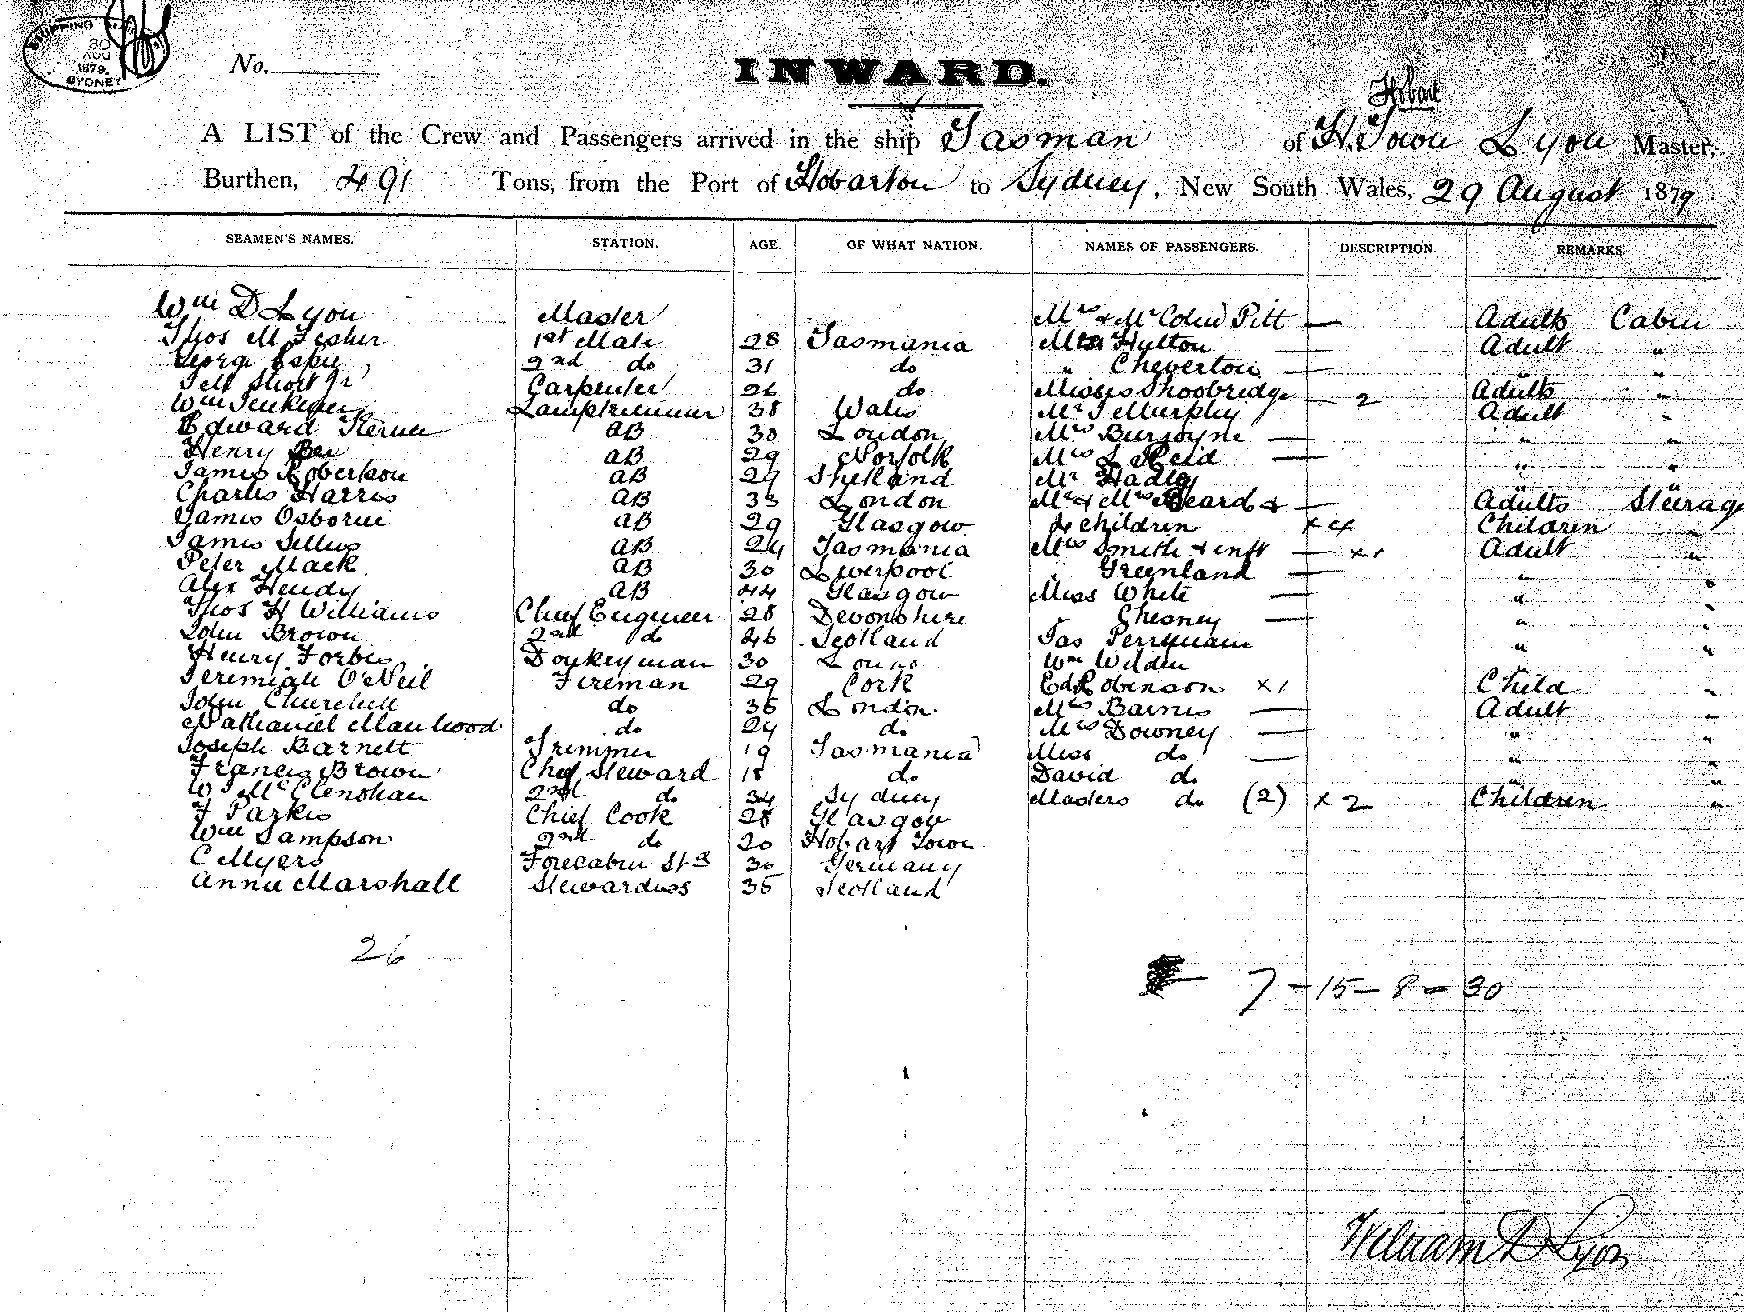 SHIPPING
30
AUG
1879.
SYDNEY
No.
INWARD.
Hobart
A LIST of the Crew and Passengers arrived in the ship Tasman of H. Town Lyon Master,
Burthen, 491 Tons, from the Port of Hobarton to Sydney, New South Wales, 29 August 1879
SEAMEN'S NAMES. STATION. AGE. OF WHAT NATION. NAMES OF PASSENGERS. DESCRIPTION. REMARKS.
Wm D Lyon Master Mrs & Mr Pitt — Adults Cabin
Thos M Fisher 1st Mate 28 Tasmania Hutton — Adult "
2nd do 31 do " Cheverton — " "
Carpenter 26 do Misses Shoobridge — 2 Adults "
Wm Lamptrimmer 38 Wales Mr T Murphy Adult "
Edward AB 30 London Mrs Burgoyne — " "
Henry AB 29 Norfolk Mrs L Reid — " "
James Robertson AB 27 Shetland Mr Hadley " "
Charles Harris AB 33 London Mr & Mrs Beard & — Adults Steerage
James Osborne AB 29 Glasgow 4 children x 4 Children "
James AB 24 Tasmania Mrs Smith & inft — x 1 Adult "
Peter Mack AB 30 Liverpool " Greenland — " "
Alex Hendy AB 44 Glasgow Miss White — " "
Thos H Williams Chief Engineer 28 Devonshire " Chesney — " "
John Brown 2nd do 46 Scotland Jas Perryman " "
Henry Forbes Donkeyman 30 Wm Wilden " "
Jeremiah O'Neil Fireman 29 Cork Ed Robinson x 1 Child "
John Churchill do 36 London Mrs Barnes — Adult "
Nathaniel Manhood do 24 do Mrs Downey — " "
Joseph Barnett Trimmer 19 Tasmania Miss do — " "
Francis Brown Chief Steward 18 do David do " "
W J McClenohan 2nd do 34 Sydney Masters do (2) x 2 Children "
F Parkes Chief Cook 28 Glasgow
Wm Sampson 2nd do 20 Hobart Town
C Myers Forecabin Std 30 Germany
Annie Marshall Stewardess 36 Scotland
26
7 - 15 - 8 - 30
William D Lyon